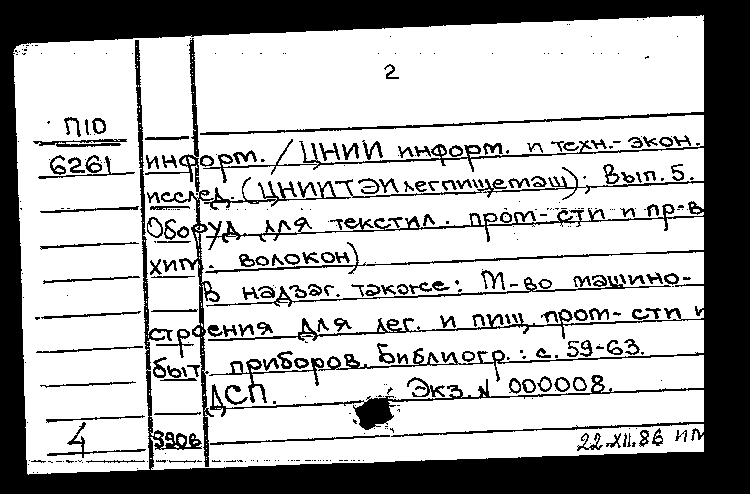 2
П10
6261
информ. / ЦНИИ информ. и техн.-экон.
исслед. (ЦНИИТЭИлегпищемаш); Вып. 5.
Оборуд. для текстил. пром-сти и пр-в
хим. волокон)
В надзаг. также: М-во машино-
строения для лег. и пищ. пром-сти и
быт. приборов. Библиогр.: с. 59-63.
ДСП. Экз. № 000008.
4
22.XII.86